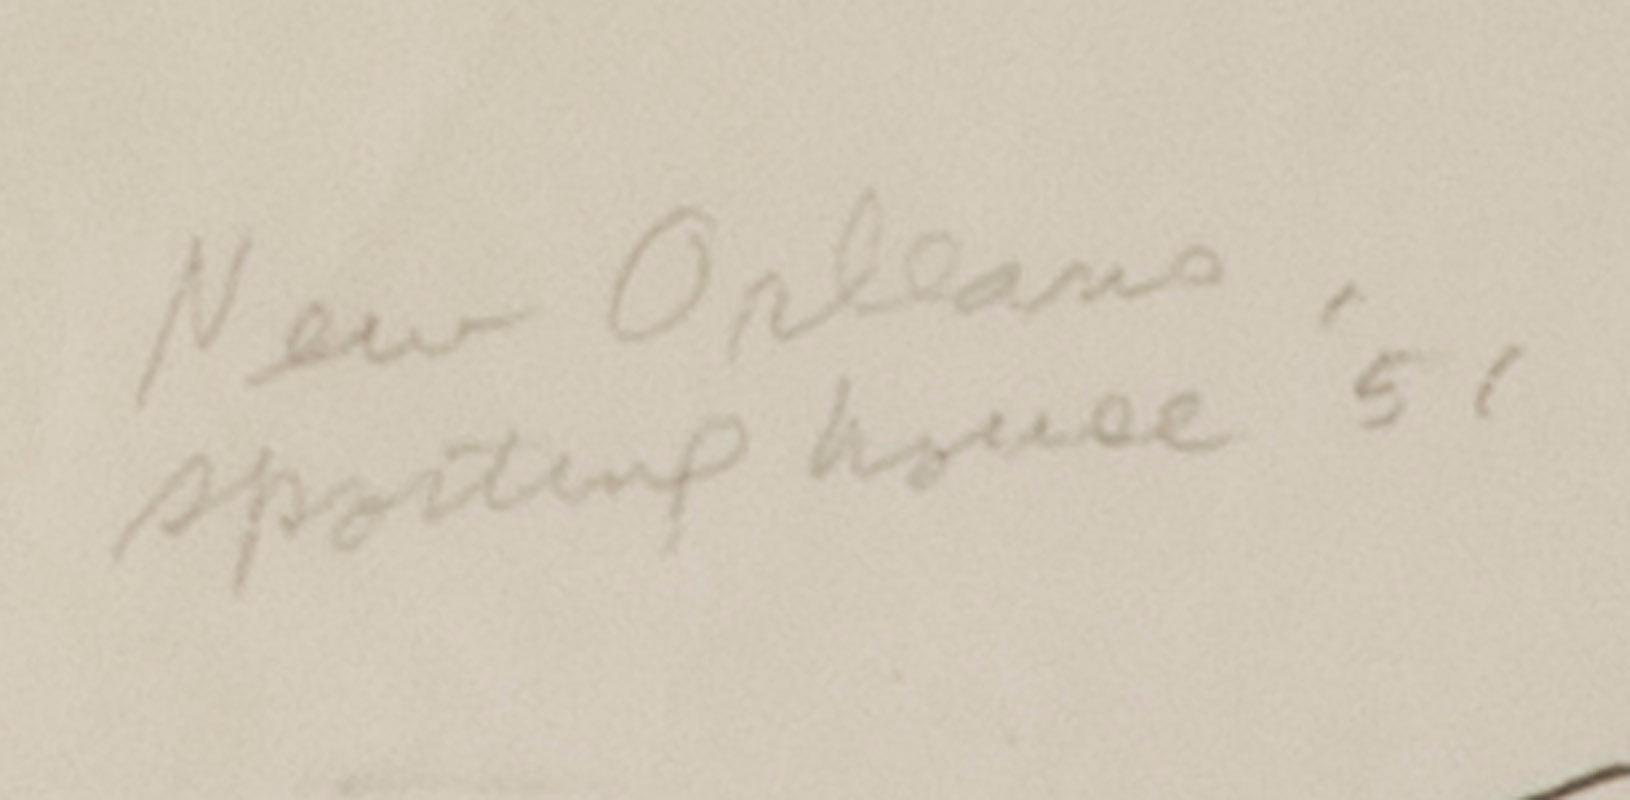 New Orleans
sporting house '51